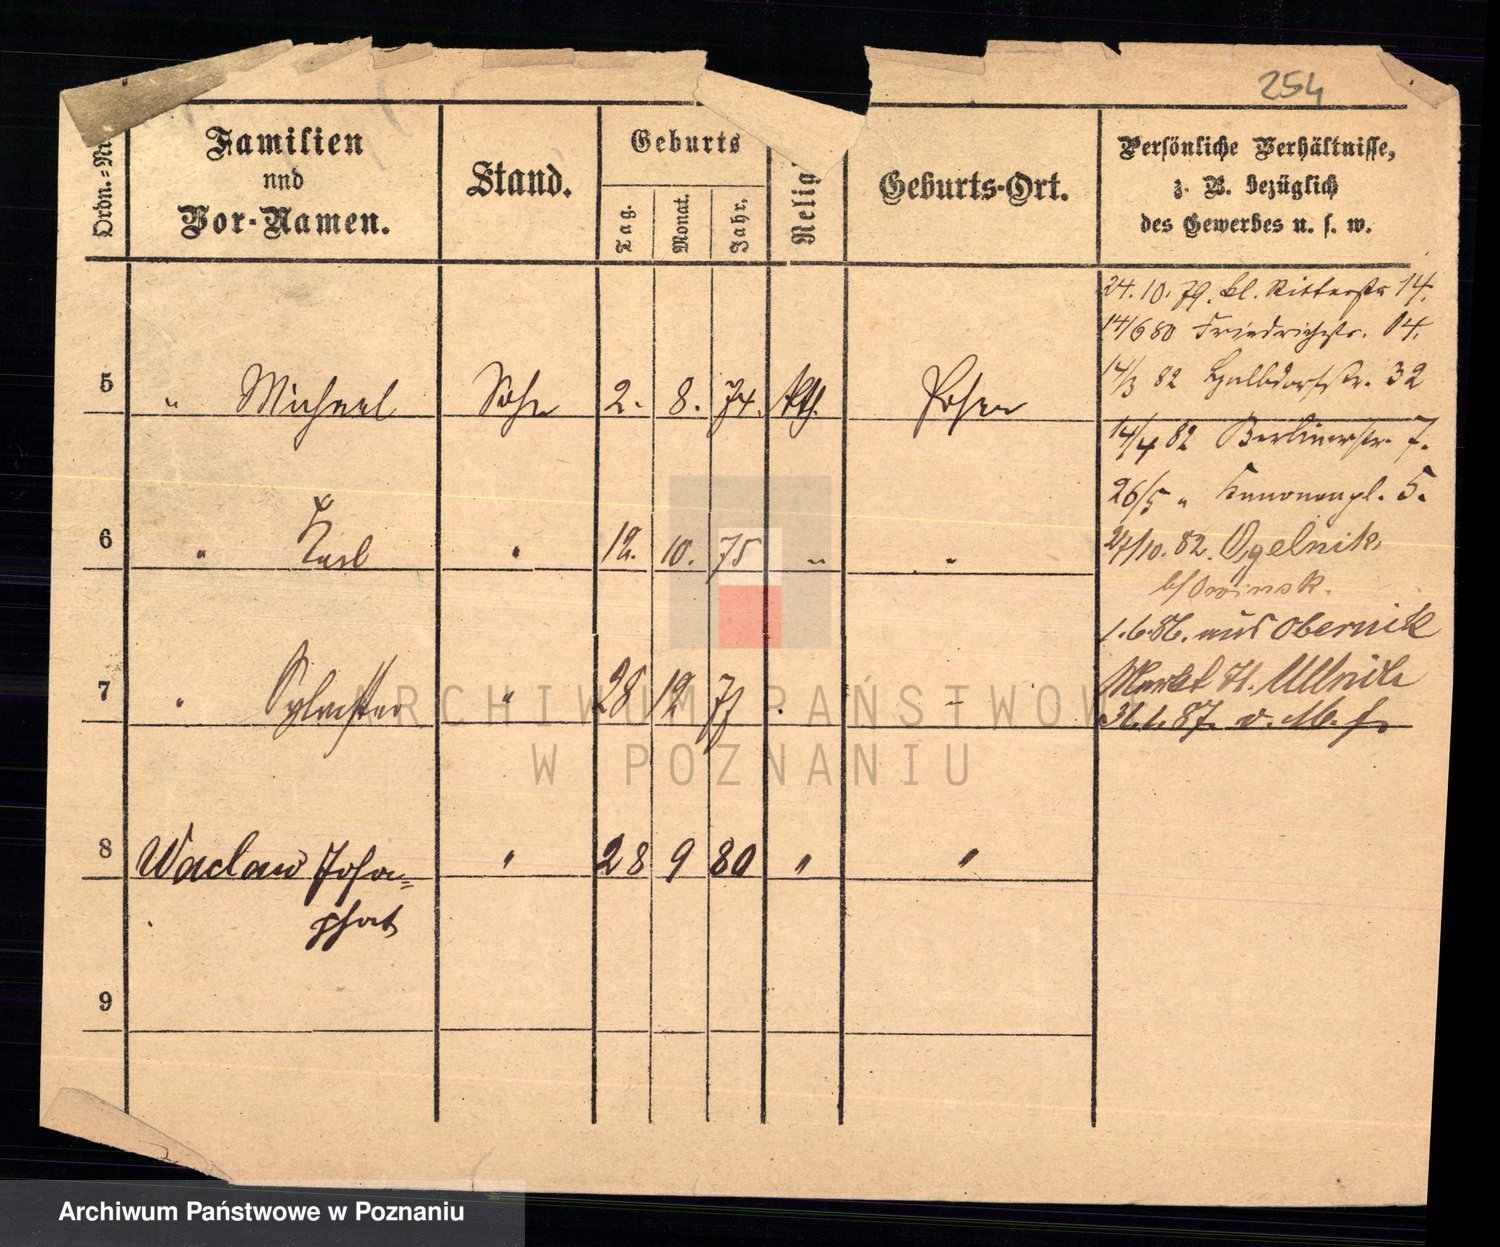 254
Ordn.=Nr
Familien
und
Vor-Namen.
Stand.
Geburts
Tag.
Monat.
Jahr.
Relig
Geburts-Ort.
Persönliche Verhältnisse,
z. B. bezüglich
des Gewerbes u. s. w.
24. 10. 79. kl. Ritterstr 14.
14/6 80 Friedrichstr. 04.
14/3 82 Halbdorfstr. 32
5 " Michael Sohn 2. 8. 74. kth. Posen
14/4 82 Berlinerstr. 7.
26/5 " Kanonenpl. 5.
6 " Karl " 12. 10. 75 " "
27/10. 82.
b/Owinsk.
1. 6. 86. aus Obernik
7 " Sylvester " 28 12 77 "
Markt
8 Waclaw Josa=
phat " 28 9 80 " "
9
ARCHIWUM PAŃSTWOW
W POZNANIU
Archiwum Państwowe w Poznaniu